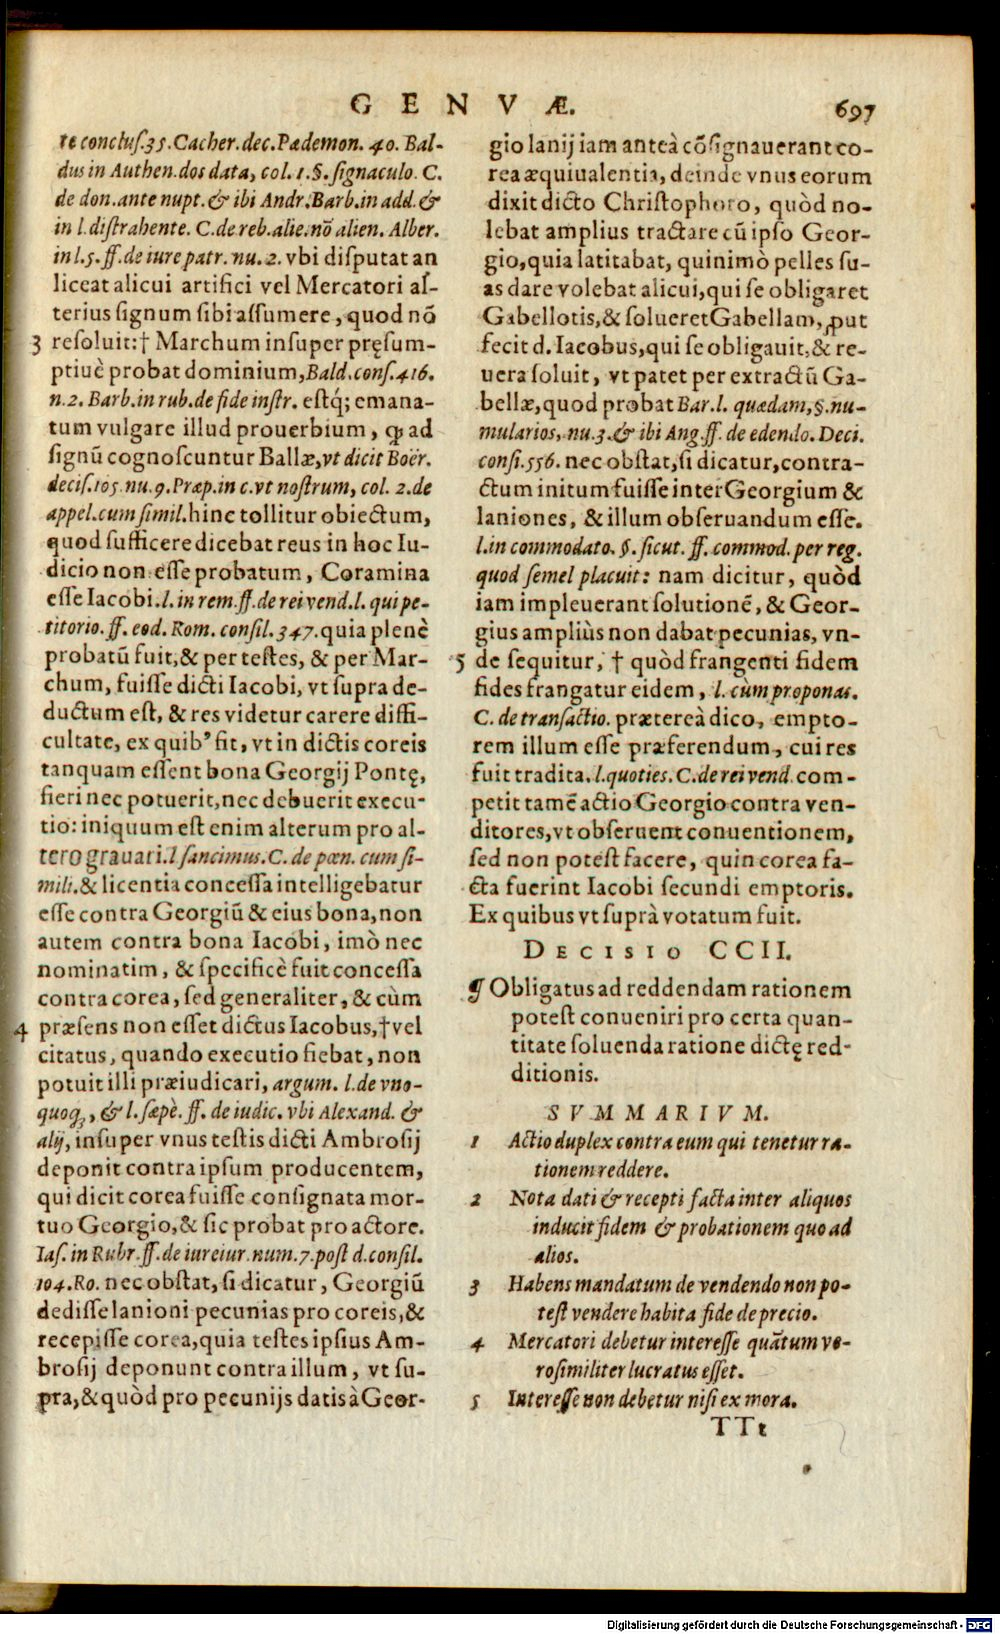 GENVÆ. 697
te conclus.35. Cacher. dec. Pædemon. 40. Bal-
dus in Authen. dos data, col. 1. §. signaculo. C.
de don. ante nupt. & ibi Andr. Barb. in add. &
in l. distrahente. C. de reb. alie. nō alien. Alber.
in l. 5. ff. de iure patr. nu. 2. vbi disputat an
liceat alicui artifici vel Mercatori al-
terius signum sibi assumere, quod nō
3 resoluit: † Marchum insuper pręsum-
ptiuè probat dominium, Bald. cons. 416.
n. 2. Barb. in rub. de fide instr. estq́; emana-
tum vulgare illud prouerbium, ꝙ ad
signū cognoscuntur Ballæ, vt dicit Boër.
decis. 105. nu. 9. Præp. in c. vt nostrum, col. 2. de
appel. cum simil. hinc tollitur obiectum,
quod sufficere dicebat reus in hoc Iu-
dicio non esse probatum, Coramina
esse Iacobi. l. in rem. ff. de rei vend. l. qui pe-
titorio. ff. eod. Rom. consil. 347. quia plenè
probatū fuit, & per testes, & per Mar-
chum, fuisse dicti Iacobi, vt supra de-
ductum est, & res videtur carere diffi-
cultate, ex quibꝰ fit, vt in dictis coreis
tanquam essent bona Georgij Pontę,
fieri nec potuerit, nec debuerit execu-
tio: iniquum est enim alterum pro al-
tero grauari. l sancimus. C. de pœn. cum si-
mili. & licentia concessa intelligebatur
esse contra Georgiū & eius bona, non
autem contra bona Iacobi, imò nec
nominatim, & specificè fuit concessa
contra corea, sed generaliter, & cùm
4 præsens non esset dictus Iacobus, † vel
citatus, quando executio fiebat, non
potuit illi præiudicari, argum. l. de vno-
quoqꝫ, & l. sæpè. ff. de iudic. vbi Alexand. &
alij, insuper vnus testis dicti Ambrosij
deponit contra ipsum producentem,
qui dicit corea fuisse consignata mor-
tuo Georgio, & sic probat pro actore.
Ias. in Rubr. ff. de iureiur. num. 7. post d. consil.
104. Ro. nec obstat, si dicatur, Georgiū
dedisse lanioni pecunias pro coreis, &
recepisse corea, quia testes ipsius Am-
brosij deponunt contra illum, vt su-
pra, & quòd pro pecunijs datis à Geor-
gio lanij iam anteà cōsignauerant co-
rea æquiualentia, deinde vnus eorum
dixit dicto Christophoro, quòd no-
lebat amplius tractare cū ipso Geor-
gio, quia latitabat, quinimò pelles su-
as dare volebat alicui, qui se obligaret
Gabellotis, & solueret Gabellam, ꝓut
fecit d. Iacobus, qui se obligauit, & re-
uera soluit, vt patet per extractū Ga-
bellæ, quod probat Bar. l. quædam, §. nu-
mularios, nu. 3. & ibi Ang. ff. de edendo. Deci.
consi. 556. nec obstat, si dicatur, contra-
ctum initum fuisse inter Georgium &
laniones, & illum obseruandum esse.
l. in commodato. §. sicut. ff. commod. per reg.
quod semel placuit: nam dicitur, quòd
iam impleuerant solutionē, & Geor-
gius ampliùs non dabat pecunias, vn-
5 de sequitur, † quòd frangenti fidem
fides frangatur eidem, l. cùm proponas.
C. de transactio. prætereà dico, empto-
rem illum esse præferendum, cui res
fuit tradita. l. quoties. C. de rei vend. com-
petit tamē actio Georgio contra ven-
ditores, vt obseruent conuentionem,
sed non potest facere, quin corea fa-
cta fuerint Iacobi secundi emptoris.
Ex quibus vt suprà votatum fuit.
DECISIO CCII.
¶ Obligatus ad reddendam rationem
potest conueniri pro certa quan-
titate soluenda ratione dictę red-
ditionis.
SVMMARIVM.
1 Actio duplex contra eum qui tenetur ra-
tionem reddere.
2 Nota dati & recepti facta inter aliquos
inducit fidem & probationem quo ad
alios.
3 Habens mandatum de vendendo non po-
test vendere habita fide de precio.
4 Mercatori debetur interesse quātum ve-
rosimiliter lucratus esset.
5 Interesse non debetur nisi ex mora.
TTt
Digitalisierung gefördert durch die Deutsche Forschungsgemeinschaft - DFG